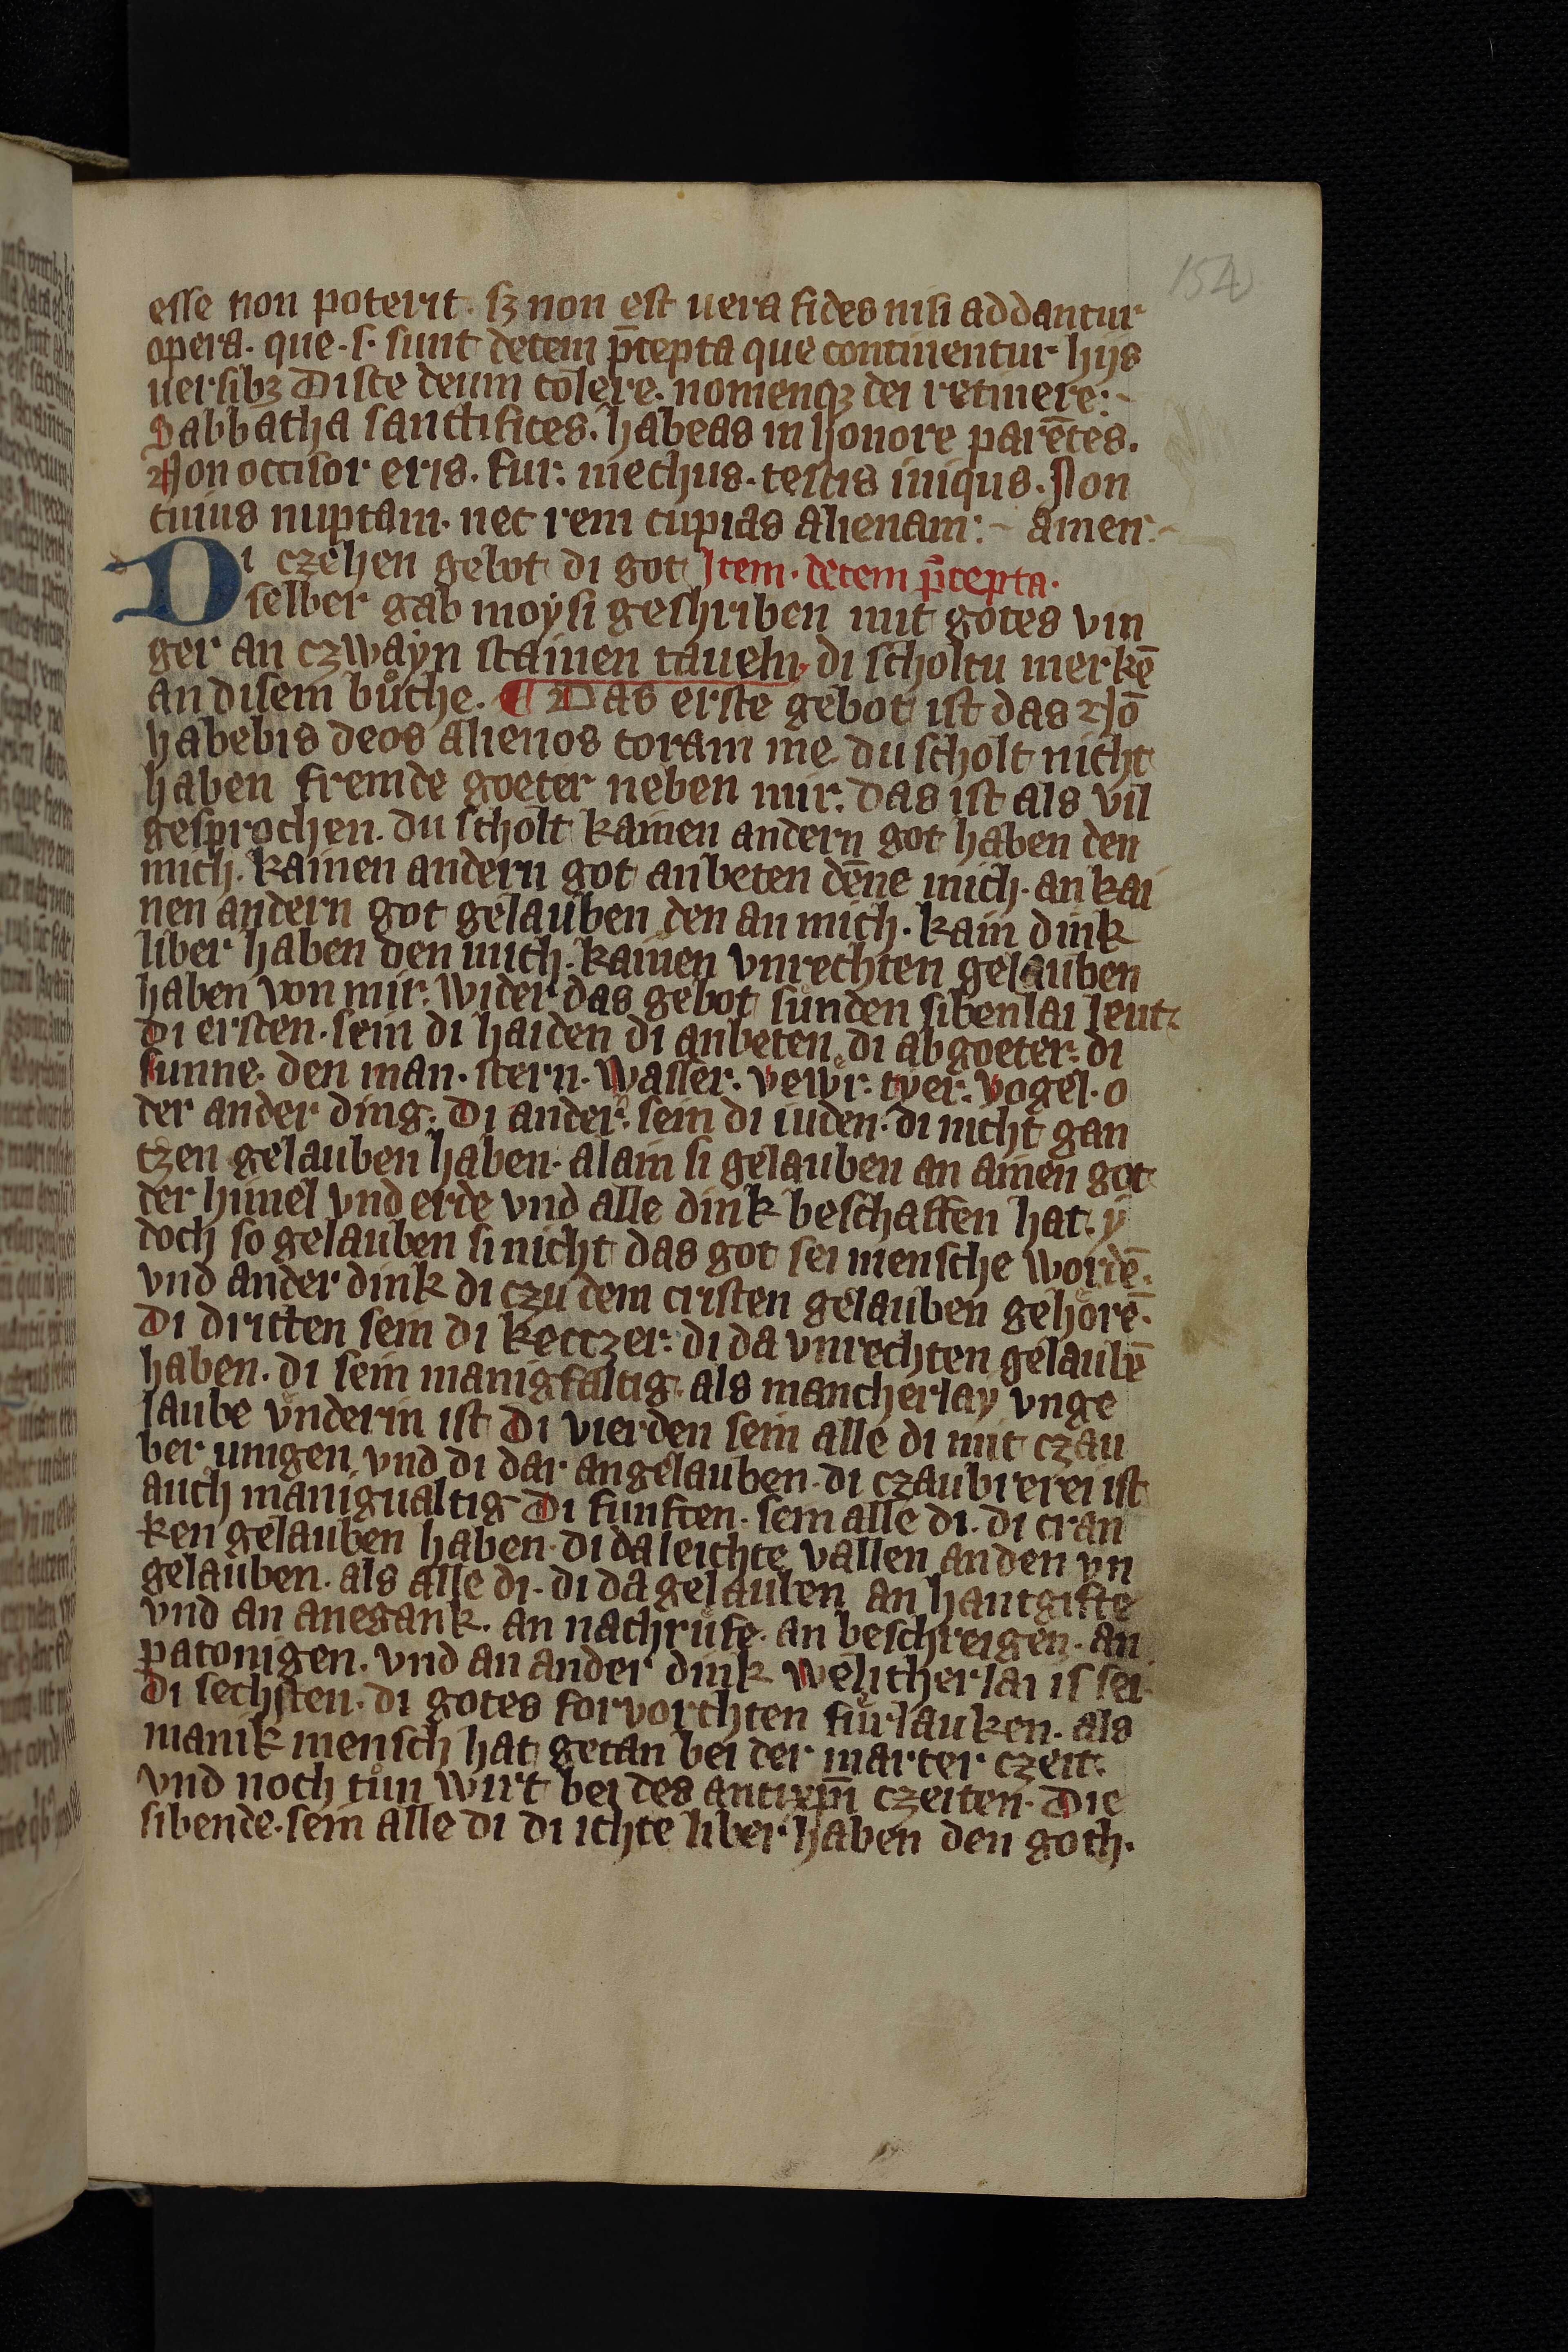 154
esse non poterit. sꝫ non est uera fides nisi addantur
opera. que. s. sunt decem p̄cepta que continentur hijs
uersibꝫ Disce deum colere. nomenqꝫ dei retinere:-
Sabbatha sanctifices. habeas in honore parētes.
Non occisor eris. fur. mechus. testis iniqus. Non
cuius nuptam. nec rem cupias alienam:- amen.-
Di czehen gebot di got Jtem. decem p̄cepta.
selber gab moysi geshriben mit gotes vin
ger an czwayn stainen taueln. di scholtu merkē
an disem bůche. ¶ Das erste gebot ist das Nō
habebis deos alienos coram me. du scholt nicht
haben fremde goeter neben mir. das ist als vil
gesprochen. du scholt kainen andern got haben den
mich. kainen andern got anbeten dēne mich. an kai
nen andern got gelauben den an mich. kain dink
liber haben den mich. kainen vnrechten gelauben
haben von mir. wider das gebot sůnden sibenlai leut.
Di ersten. sein di haiden di anbeten di abgoeter. di
sunne. den man. stern. wasser. vewͤr. tyer. vogel. o
der ander ding. Di ander. sein di iuden. di nicht gan
tzen gelauben haben. alain si gelauben an ainen got
der himel vnd erde vnd alle dink beschaffen hat. y
doch so gelauben si nicht das got sei mensche wordē.
vnd ander dink di czu dem cristen gelauben gehoͤrē.
Di dritten sein di ketczer. di da vnrechten gelaubē
haben. di sein manigfaltig. als mancherlay vnge
laube vnderin ist Di vierden sein alle di mit czau
ber umgen vnd di dar an gelauben. di czaubirerei ist
auch manigualtig Di funften. sein alle di. di cran
ken gelauben haben. di da leichte vallen an den vn
gelauben. als alle di. di da gelauben an hantgifte
vnd an anegank. an nachrůfe. an beschreigen. an
patonigen. vnd an ander dink welicherlai is sei.
Di sechsten. di gotes forvorchten fůrlauken. als
manik mensch hat getan bei der marter czeit.
vnd noch tůn wirt bei des antixp̄i czeiten. Die
sibende. sein alle di di ichte liber haben den goth.